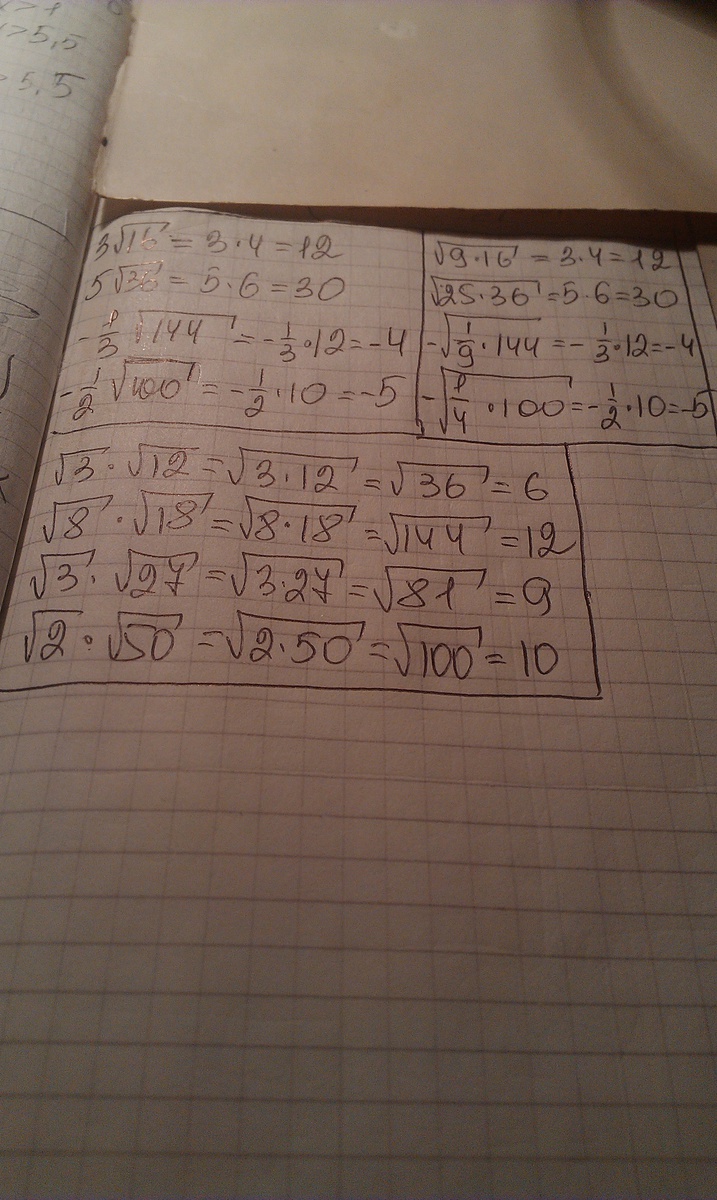 5,5
5,5
3√16 = 3·4 = 12
5√36 = 5·6 = 30
-1/3 √144 = -1/3·12 = -4
-1/2 √100 = -1/2·10 = -5
√9·16 = 3·4 = 12
√25·36 = 5·6 = 30
-√1/9·144 = -1/3·12 = -4
-√1/4·100 = -1/2·10 = -5
√3·√12 = √3·12 = √36 = 6
√8·√18 = √8·18 = √144 = 12
√3·√27 = √3·27 = √81 = 9
√2·√50 = √2·50 = √100 = 10